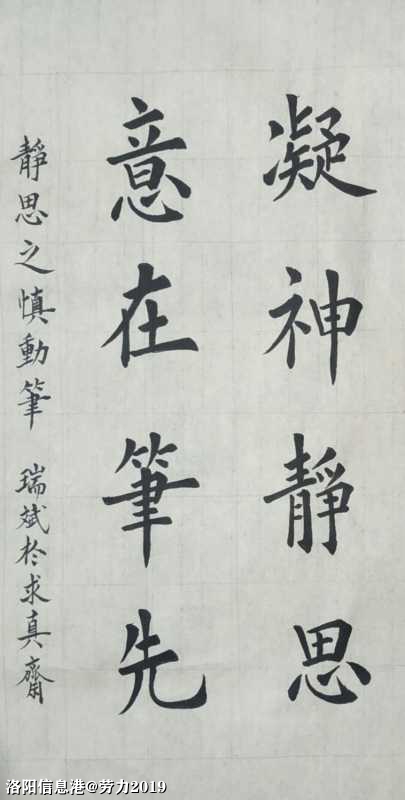 凝神靜思
意在筆先
靜思之慎動筆 瑞斌於求真齋
洛阳信息港@劳力2019